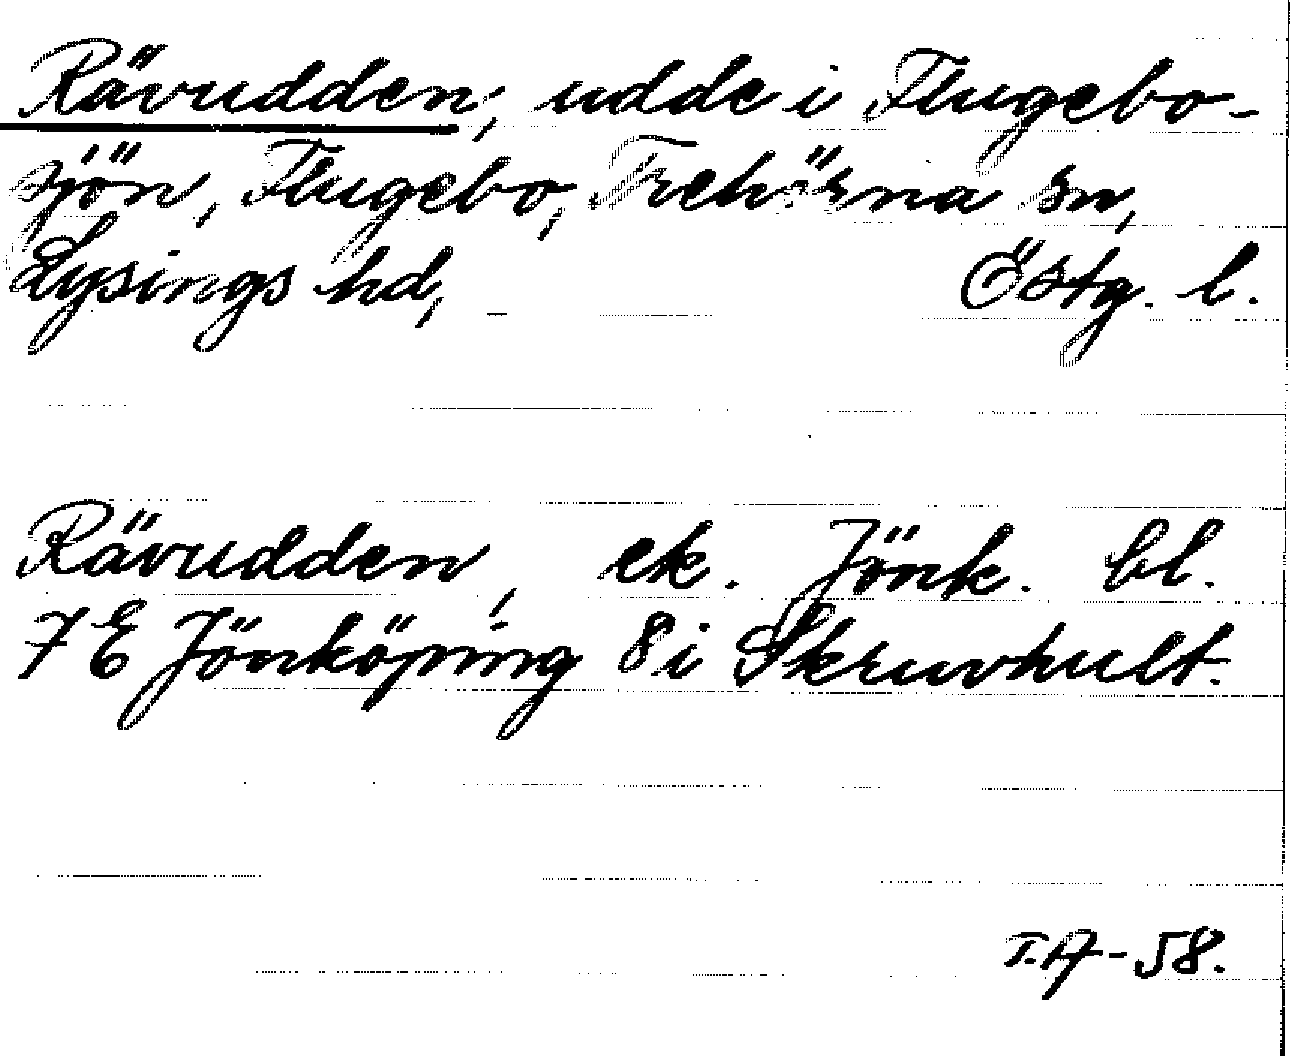 Rävudden, udde i Flugebo-
sjön, Flugebo, Trehörna sn,
Lysings hd, Östg. l.
Rävudden, ek. Jönk. bl.
7 E Jönköping 8 i Skruvhult.
T.A-58.